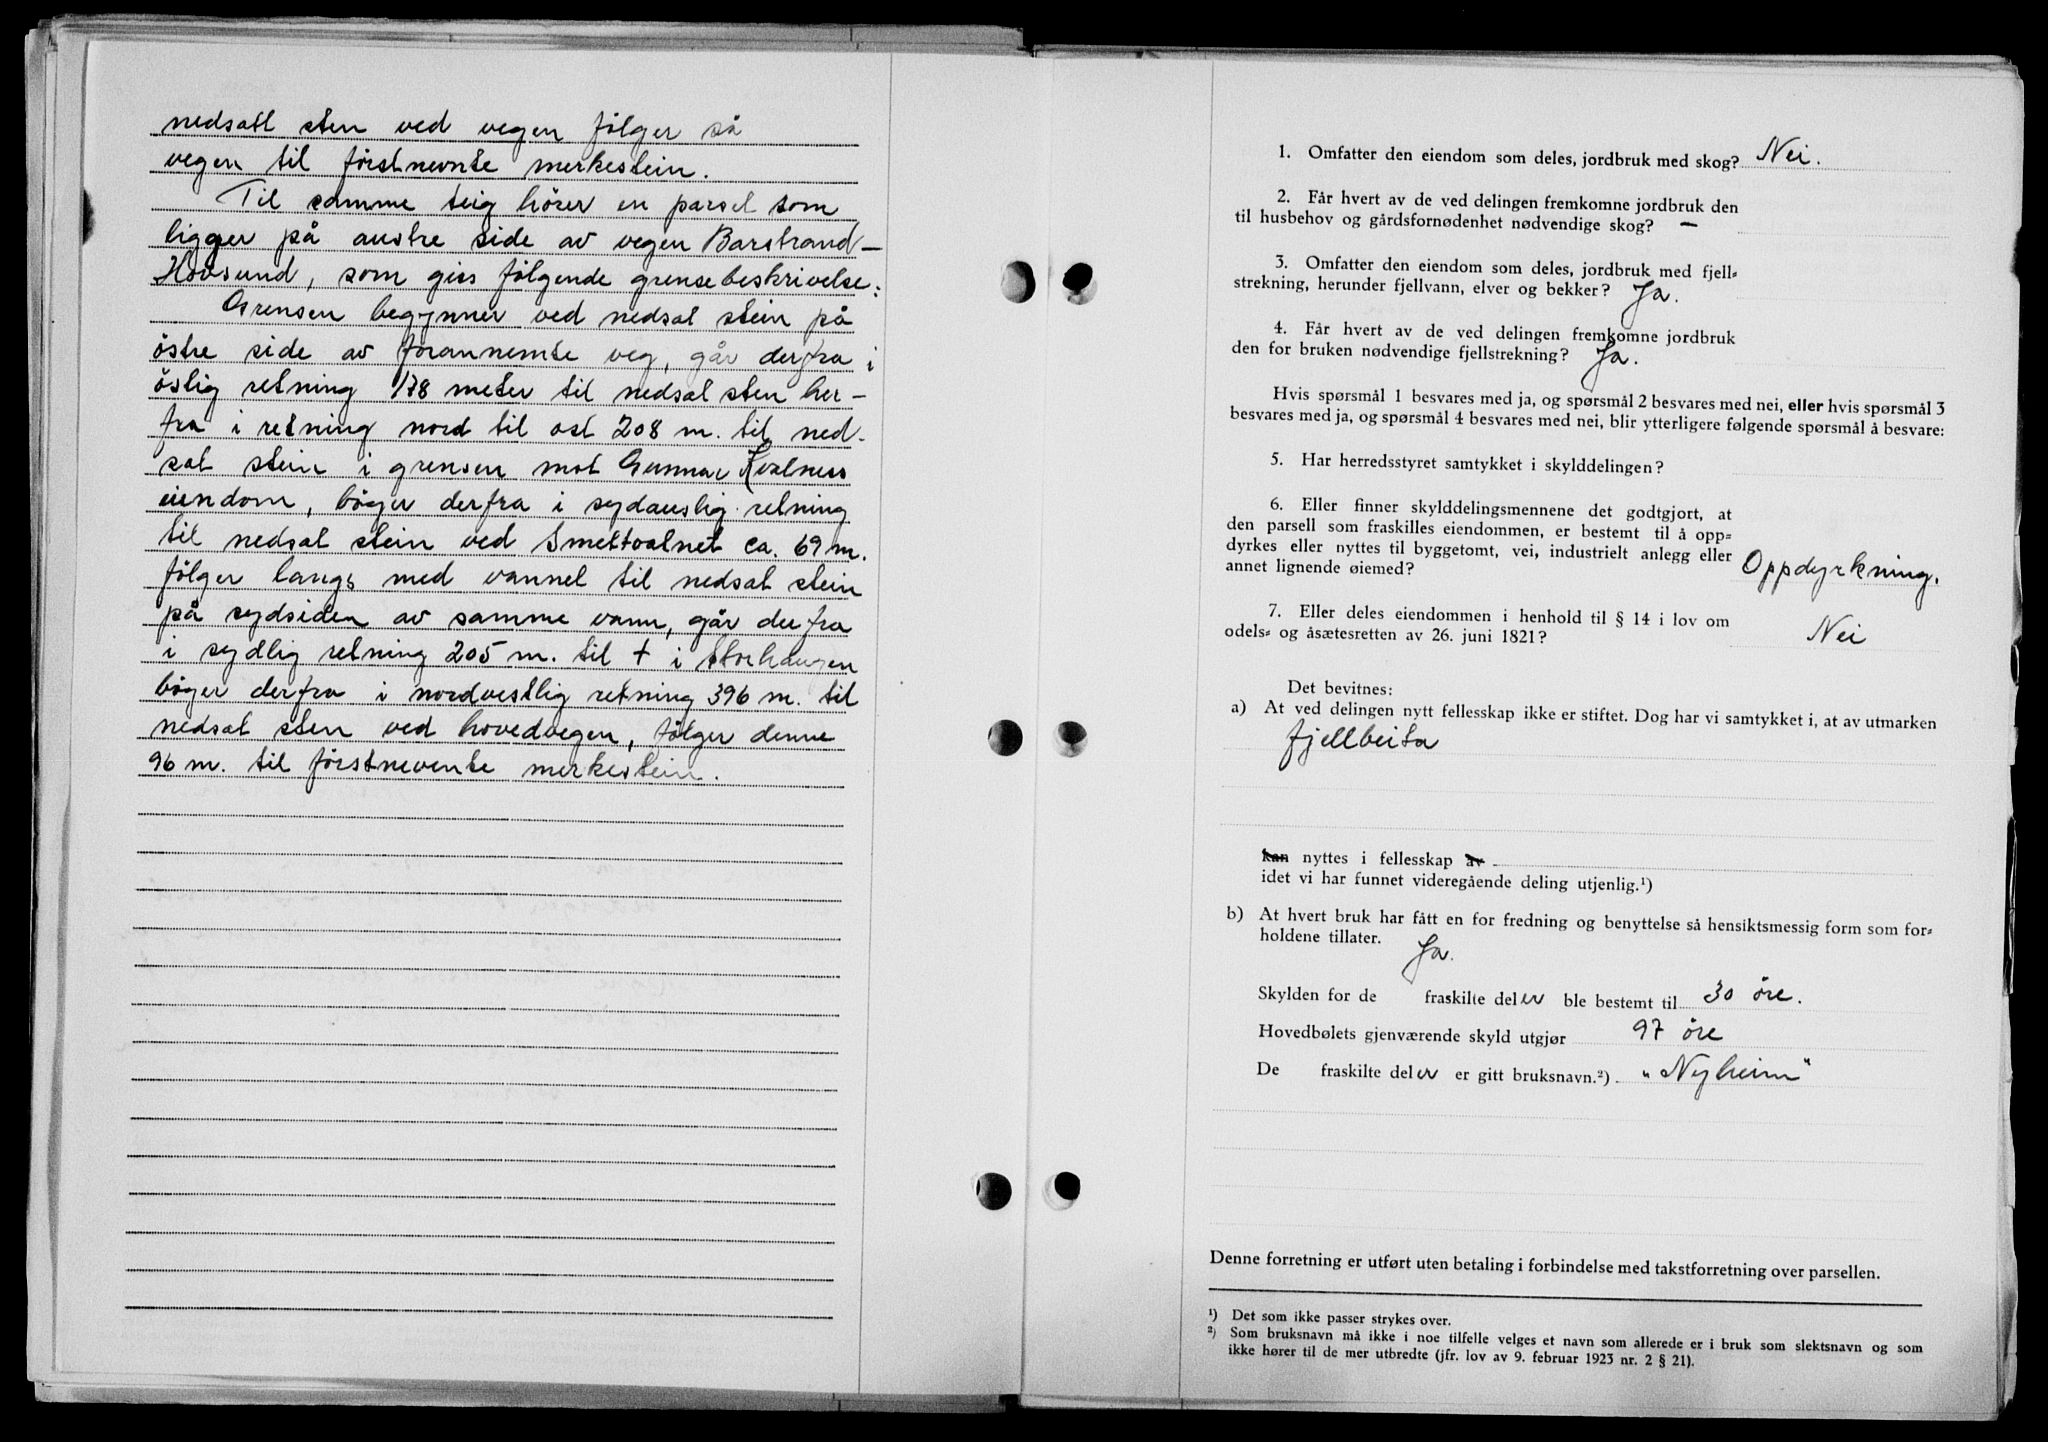 nedsatt sten ved vegen følger så
vegen til förstnevnte merkestein.
Til samme teig hörer en parsel som
ligger på austre side av vegen Barstrand-
Hovsund, som giss følgende grensebeskrivelse:
Grensen begynner ved nedsat stein på
östre side av forannemte veg, går derfra i
östlig retning 178 meter til nedsat sten her-
fra i retning nord til ost 208 m. til ned-
sat stein i grensen mot Gunnar Kvalness
eiendom, bøger derfra i sydauslig retning
til nedsat stein ved Smettvatnet ca. 69 m.
fölger langs med vannet til nedsat stein
på sydsiden av samme vann, går derfra
i sydlig retning 205 m. til + i Storhaugen
bøger derfra i nordvestlig retning 396 m. til
nedsat sten ved hovedvegen, fölger denne
96 m. til förstnevente merkestein.
1. Omfatter den eiendom som deles, jordbruk med skog? Nei.
2. Får hvert av de ved delingen fremkomne jordbruk den
til husbehov og gårdsfornødenhet nødvendige skog? —
3. Omfatter den eiendom som deles, jordbruk med fjell-
strekning, herunder fjellvann, elver og bekker? Ja.
4. Får hvert av de ved delingen fremkomne jordbruk
den for bruken nødvendige fjellstrekning? Ja.
Hvis spørsmål 1 besvares med ja, og spørsmål 2 besvares med nei, eller hvis spørsmål 3
besvares med ja, og spørsmål 4 besvares med nei, blir ytterligere følgende spørsmål å besvare:
5. Har herredsstyret samtykket i skylddelingen?
6. Eller finner skylddelingsmennene det godtgjort, at
den parsell som fraskilles eiendommen, er bestemt til å opp-
dyrkes eller nyttes til byggetomt, vei, industrielt anlegg eller
annet lignende øiemed? Oppdyrkning.
7. Eller deles eiendommen i henhold til § 14 i lov om
odels- og åsætesretten av 26. juni 1821? Nei
Det bevitnes:
a) At ved delingen nytt fellesskap ikke er stiftet. Dog har vi samtykket i, at av utmarken
fjellbeita
kan nyttes i fellesskap av
idet vi har funnet videregående deling utjenlig.¹)
b) At hvert bruk har fått en for fredning og benyttelse så hensiktsmessig form som for-
holdene tillater. Ja.
Skylden for de fraskilte deler ble bestemt til 30 öre.
Hovedbølets gjenværende skyld utgjør 97 öre
De fraskilte deler er gitt bruksnavn.²) "Nyheim"
Denne forretning er utført uten betaling i forbindelse med takstforretning over parsellen.
¹) Det som ikke passer strykes over.
²) Som bruksnavn må ikke i noe tilfelle velges et navn som allerede er i bruk som slektsnavn og som
ikke hører til de mer utbredte (jfr. lov av 9. februar 1923 nr. 2 § 21).